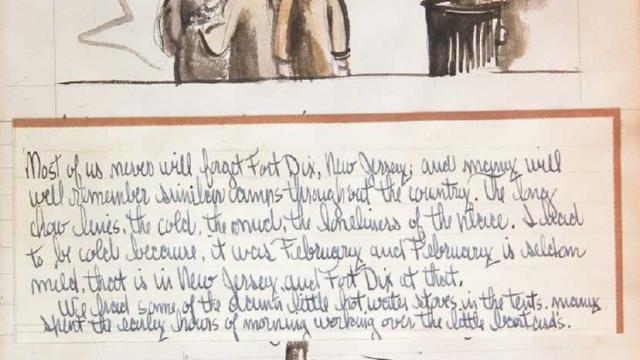 Most of us never will forget Fort Dix, New Jersey; and many will
well remember similar camps throughout the country. The long
chow lines, the cold, the mud, the loneliness of the place. I had
to be cold because, it was February and February is seldom
mild, that is in New Jersey and Fort Dix at that.
We had some of the damn little hot water stoves in the tents. many
spent the earley hours of morning working over the little bastards.